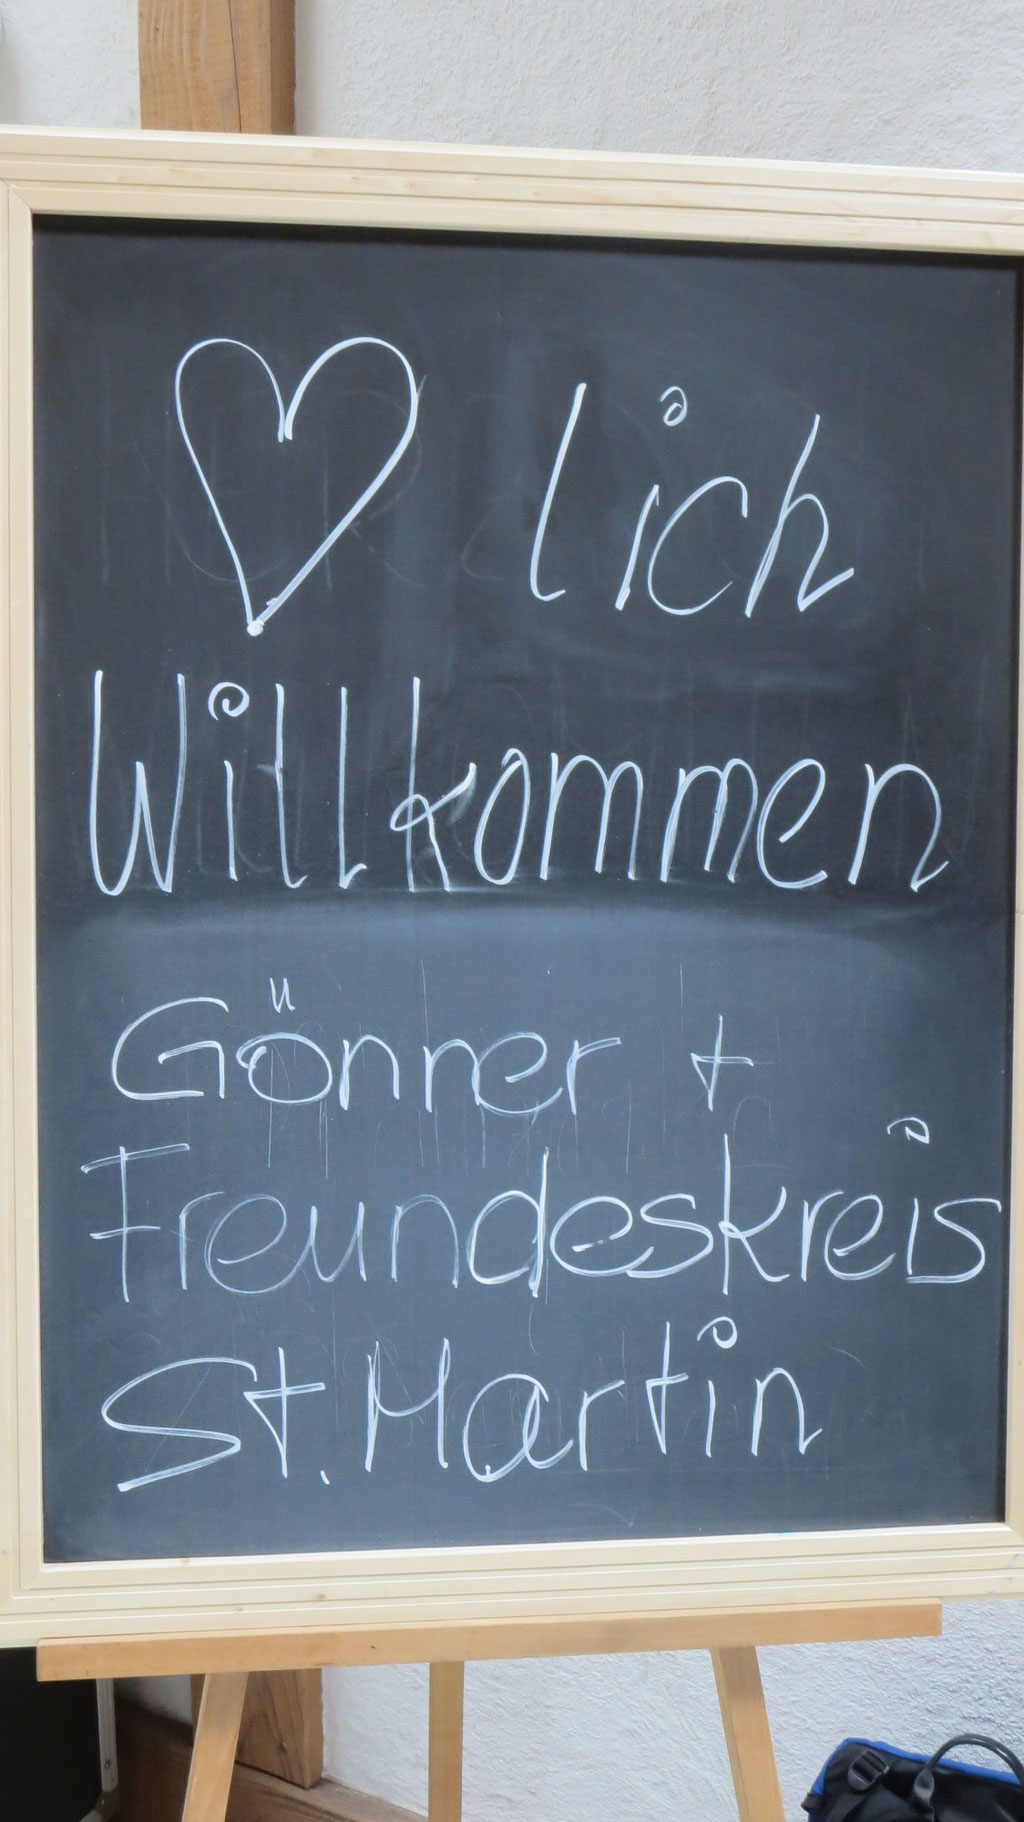 ♡ lich
Willkommen
Gönner +
Freundeskreis
St. Martin